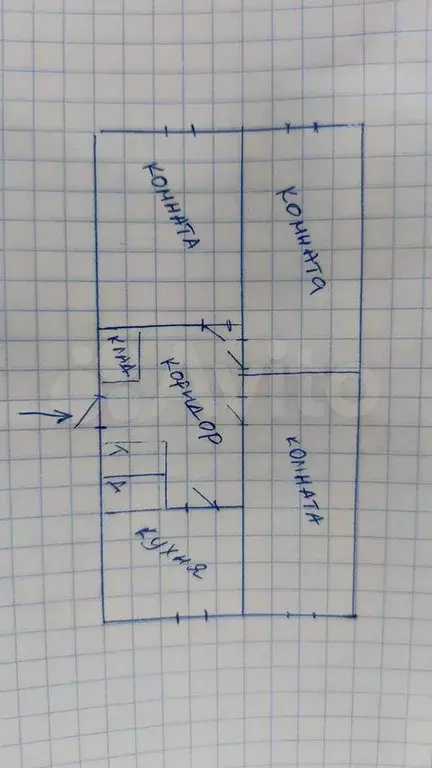 комната
комната
клад
коридор
комната
кухня
Avito